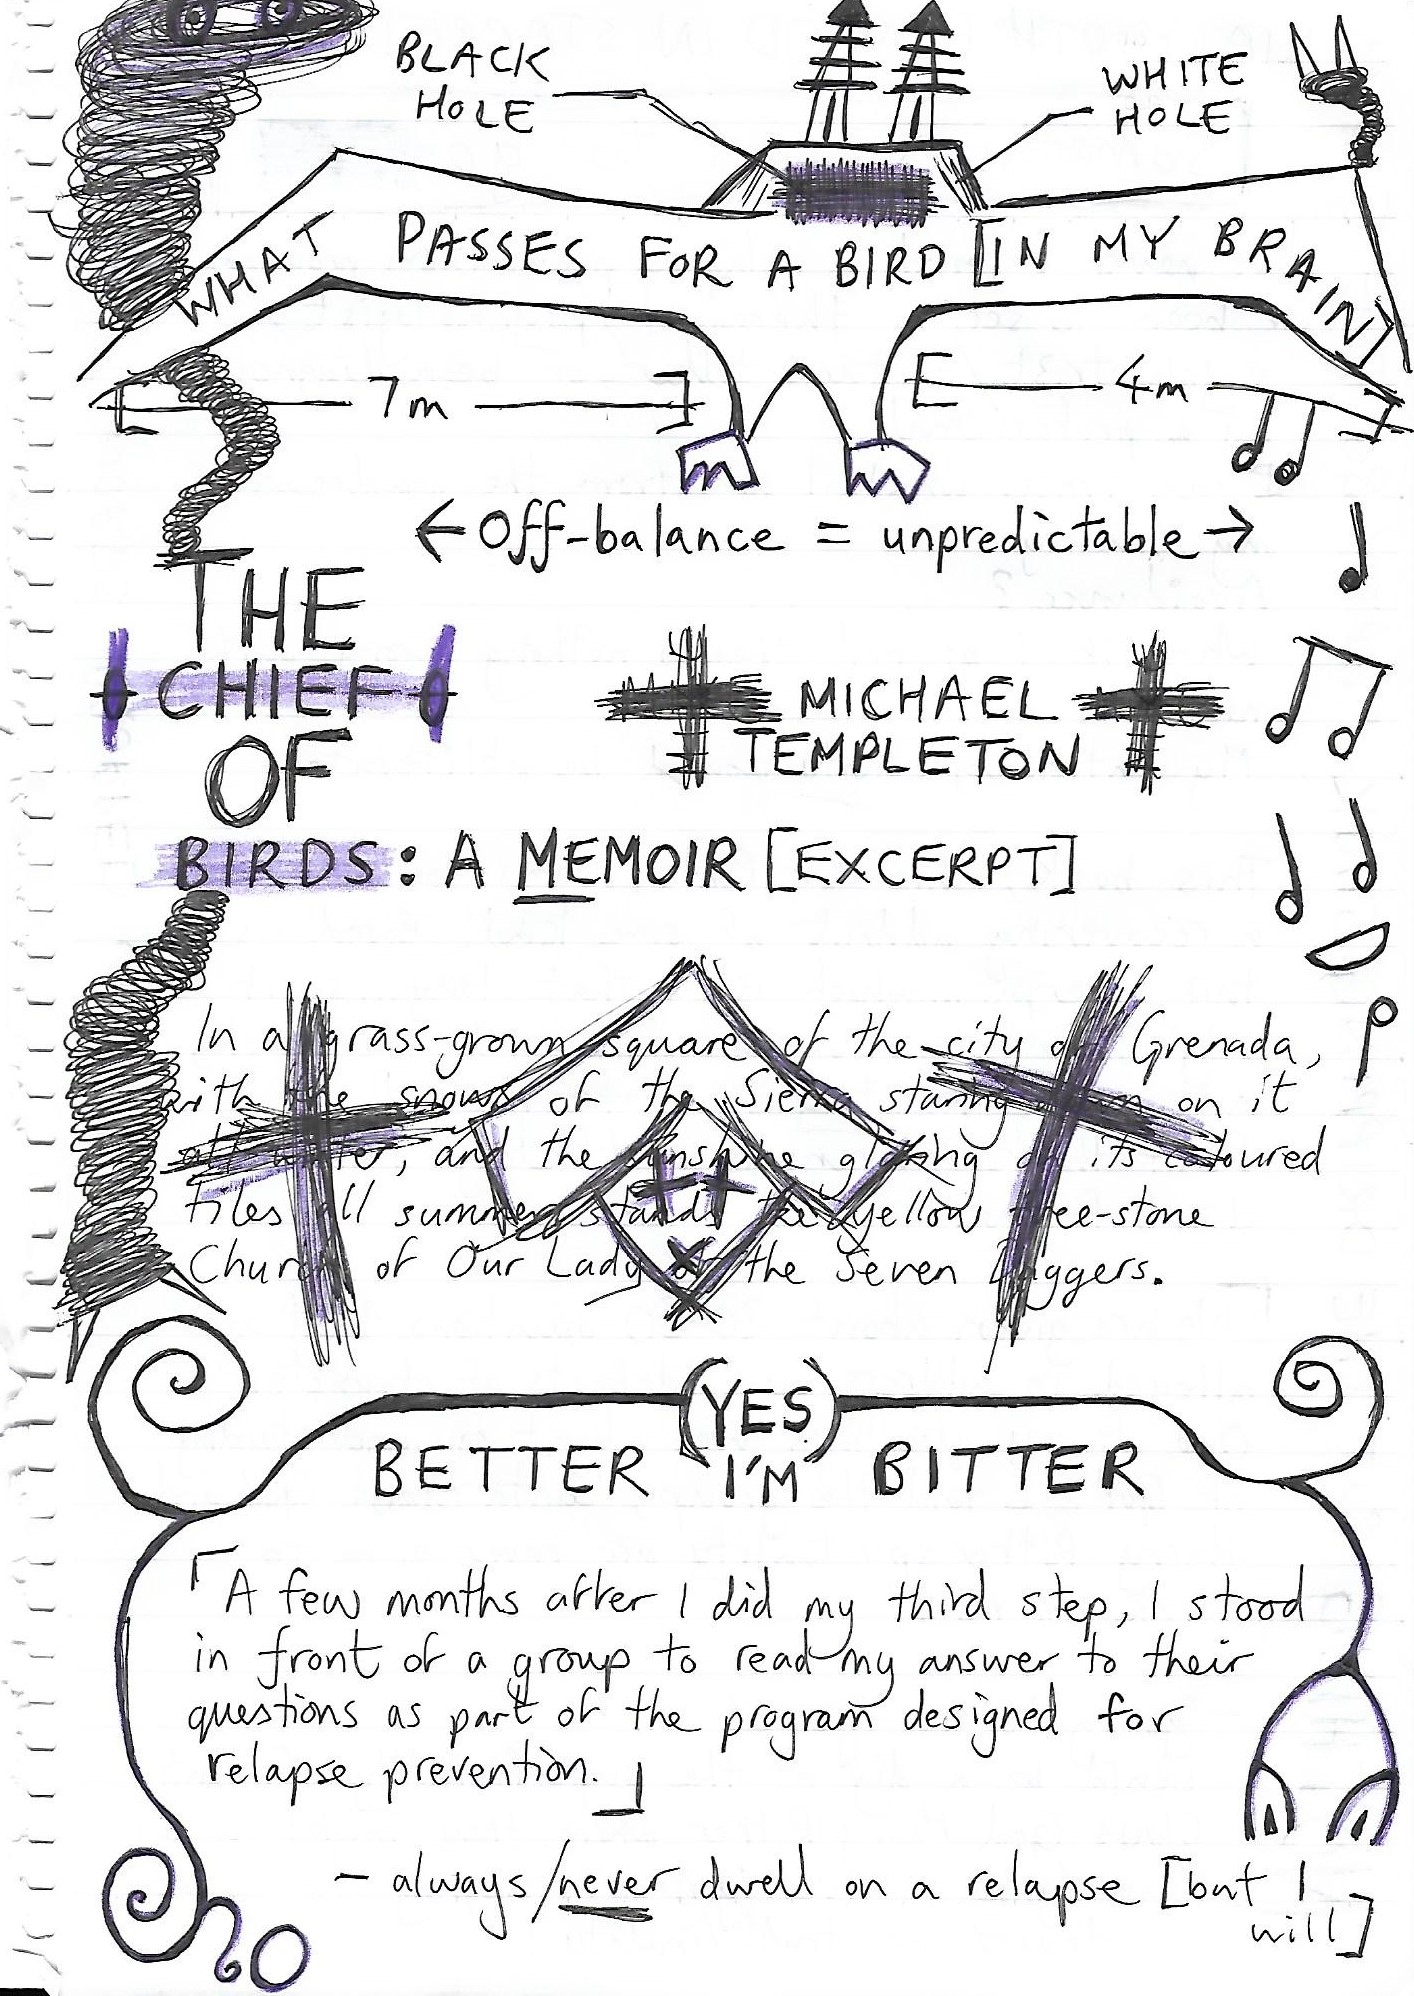 BLACK HOLE
WHITE HOLE
WHAT PASSES FOR A BIRD [IN MY BRAIN]
7m
4m
← Off-balance = unpredictable →
THE
CHIEF
OF
BIRDS: A MEMOIR [EXCERPT]
MICHAEL
TEMPLETON
In a grass-grown square of the city of Grenada,
with the snows of the Sierra staring down on it
all winter, and the sunshine glaring on its coloured
tiles all summer stands the yellow free-stone
Church of Our Lady of the Seven Daggers.
BETTER (YES I'M) BITTER
「A few months after I did my third step, I stood
in front of a group to read my answer to their
questions as part of the program designed for
relapse prevention.」
- always/never dwell on a relapse [but I
will]